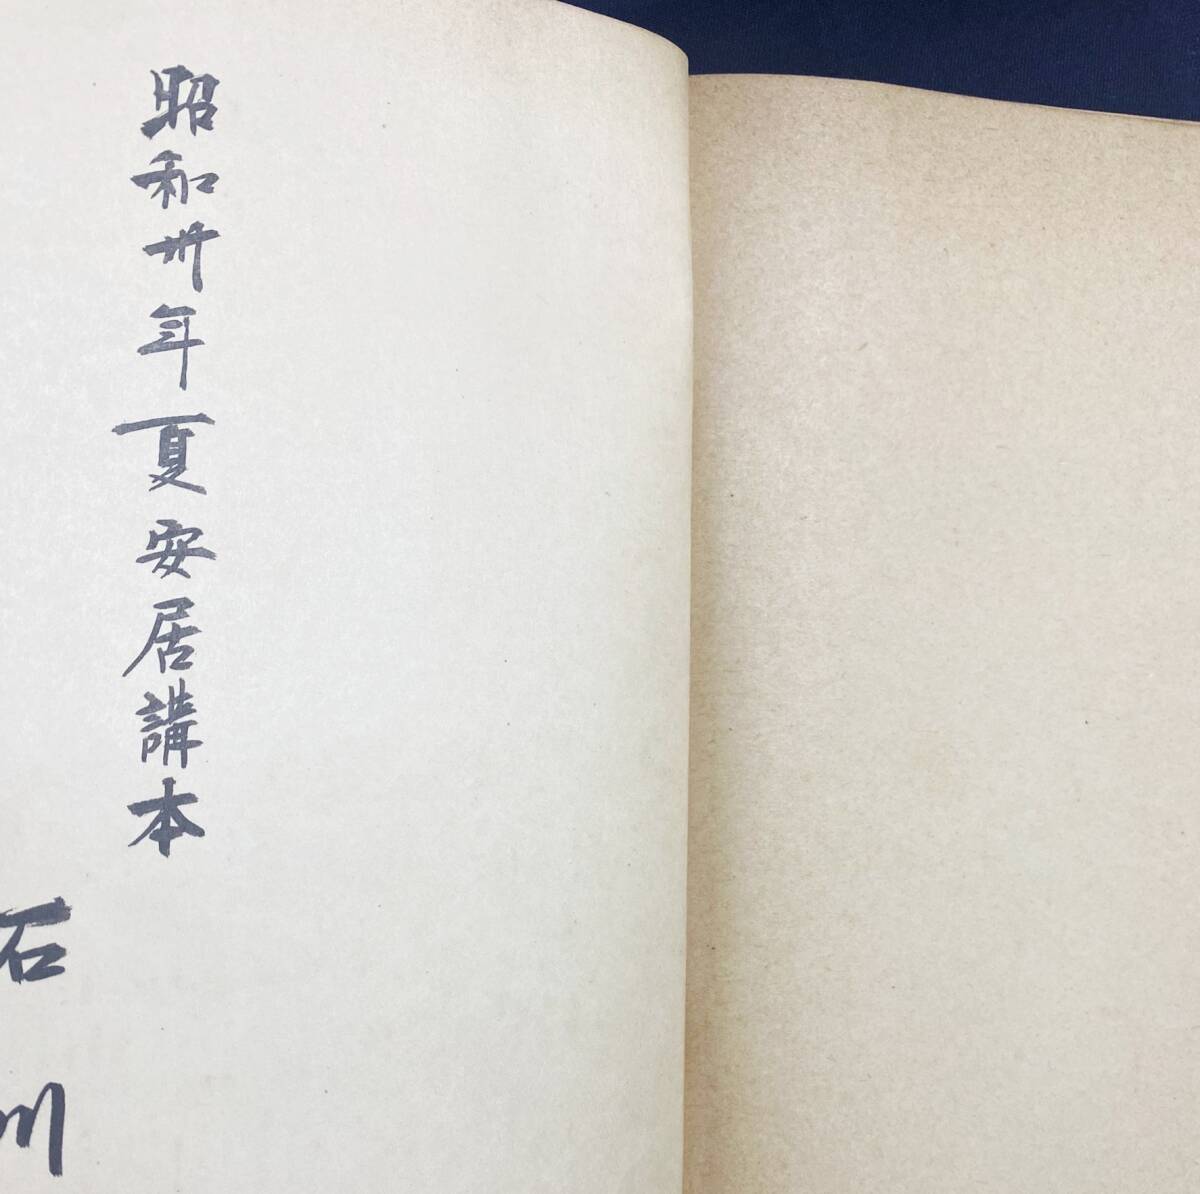 昭和卅年夏安居講本
石川